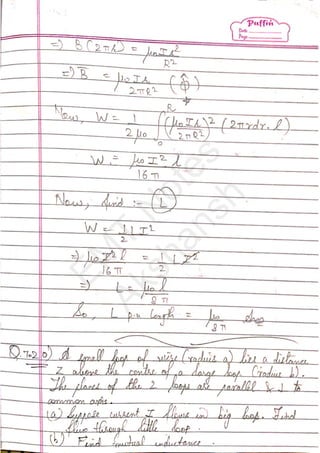 Puffin
Date
Page
=) B (2πs) = μ₀Is²/R²
=) B = μ₀Is/2πR² (φ̂)
Now, W = 1/2μ₀ ∫₀ᴿ (μ₀Is/2πR²)² (2πrdr.l)
W = μ₀I²l/16π
Now, find :- (L)
W = 1/2 LI²
=) μ₀I²l/16π = 1/2 LI²
=) L = μ₀l/8π
So, L per length = μ₀/8π
Q.7.20) A small loop of wire (radius a) lies a distance
Z above the centre of a large loop (radius b).
The planes of the 2 loops are parallel & ⊥ to
common axis.
(a) Suppose current I flows in big loop. Find
flux through little loop.
(b) Find mutual inductance.
EMT Notes
Akshansh